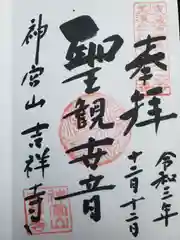 奉拝
令和三年
十二月十二日
聖観世音
神宮山 吉祥寺